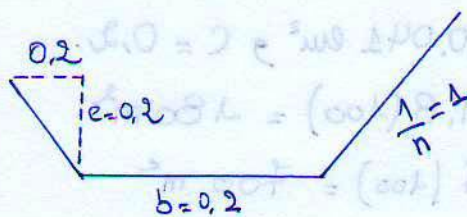 0,2
e=0,2
1/n = 1
b=0,2